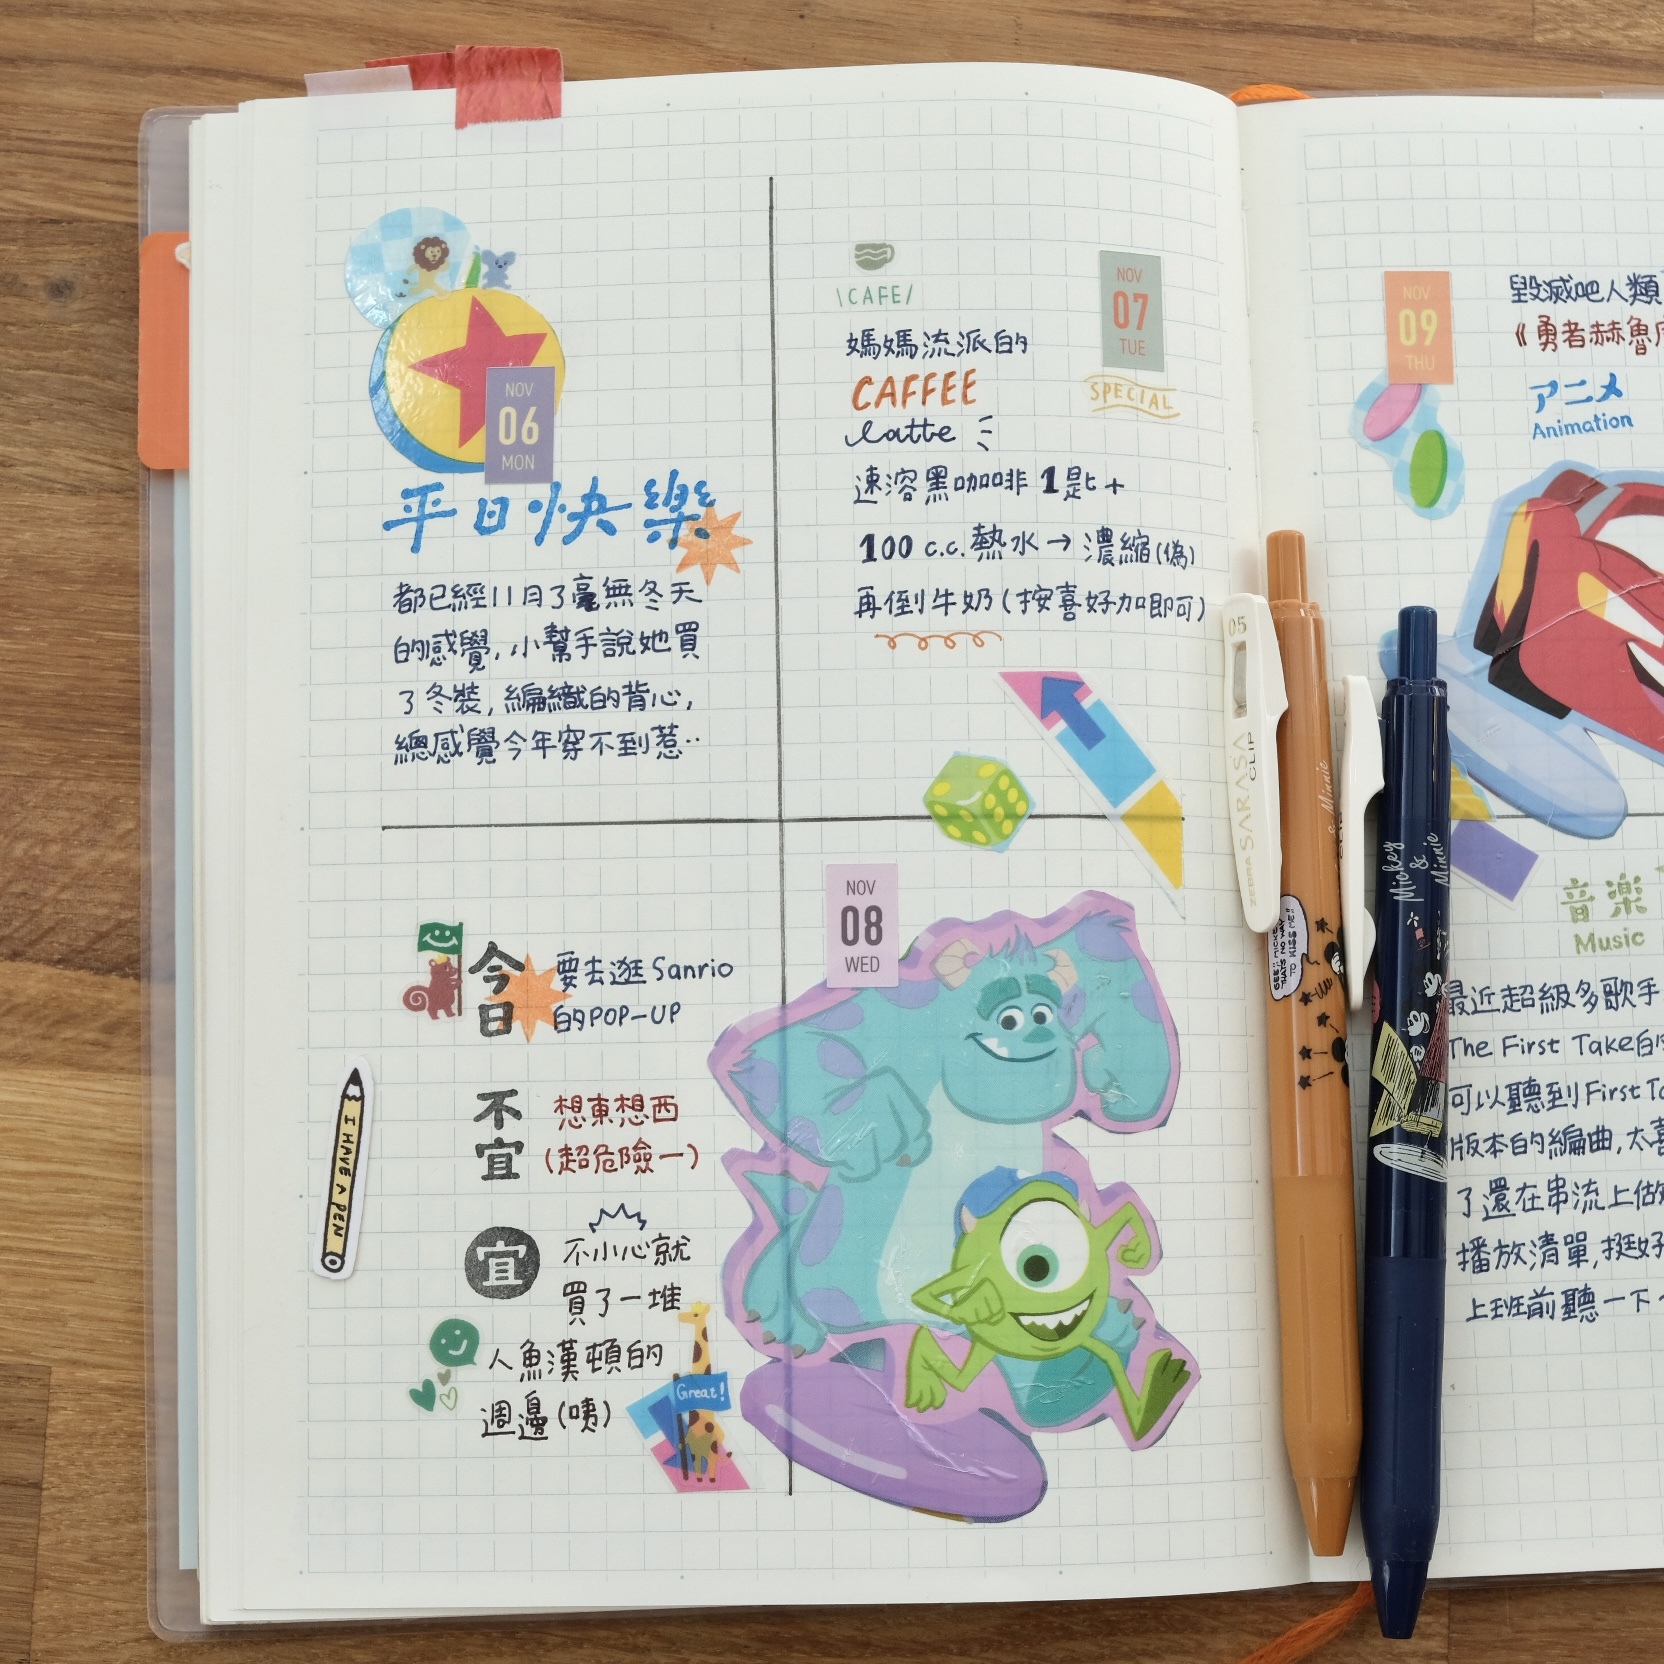 NOV
06
MON
平日快樂
都已經11月了毫無冬天
的感覺,小幫手說她買
了冬裝,編織的背心,
總感覺今年穿不到惹..
\CAFE/
NOV
07
TUE
SPECIAL
媽媽流派的
CAFFEE
latte
速溶黑咖啡 1匙+
100 c.c.熱水→濃縮(偽)
再倒牛奶(按喜好加即可)
今日
要去逛Sanrio
的POP-UP
不宜
想東想西
(超危險一)
宜
不小心就
買了一堆
人魚漢頓的
週邊(咦)
I HAVE A PEN
Great!
NOV
08
WED
NOV
09
THU
毀滅吧人類
《勇者赫魯
アニメ
Animation
音樂
Music
最近超級多歌手
The First Take的
可以聽到First Ta
版本的編曲,太喜
了還在串流上做
播放清單,挺好
上班前聽一下
05
ZEBRA SARASA CLIP
Mickey
&
Minnie